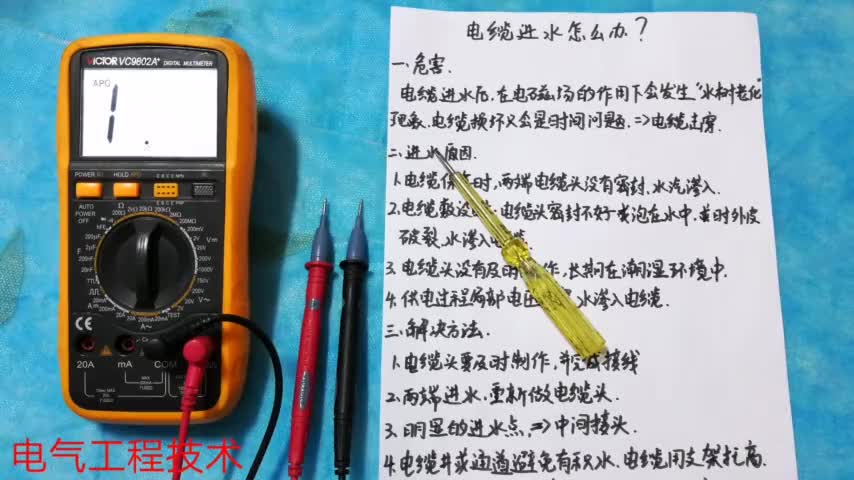 VICTOR VC9802A+
DIGITAL MULTIMETER
APO
1.
POWER
HOLD APO
AUTO
POWER
OFF
Ω
200Ω
2k
20k
200k
2M
20M
200MΩ
200m
2
20
200
1000V
750
200
20
2
200m
V~
TEST
20A
mA
COM
VΩ
CE
电气工程技术
电缆进水怎么办?
一、危害.
电缆进水后,在电磁场的作用下会发生"水树老化"
现象,电缆损坏只会是时间问题.=>电缆击穿.
二、进水原因.
1.电缆储存时,两端电缆头没有密封.水汽渗入.
2.电缆敷设时,电缆头密封不好或泡在水中,或时外皮
破裂,水渗入电缆.
3.电缆头没有及时制作,长期在潮湿环境中.
4.供电过程局部电压 水渗入电缆.
三、解决方法.
1.电缆头要及时制作,并完成接线
2.两端进水,重新做电缆头.
3.明显的进水点,=>中间接头.
4.电缆井或通道避免有积水、电缆用支架托高.